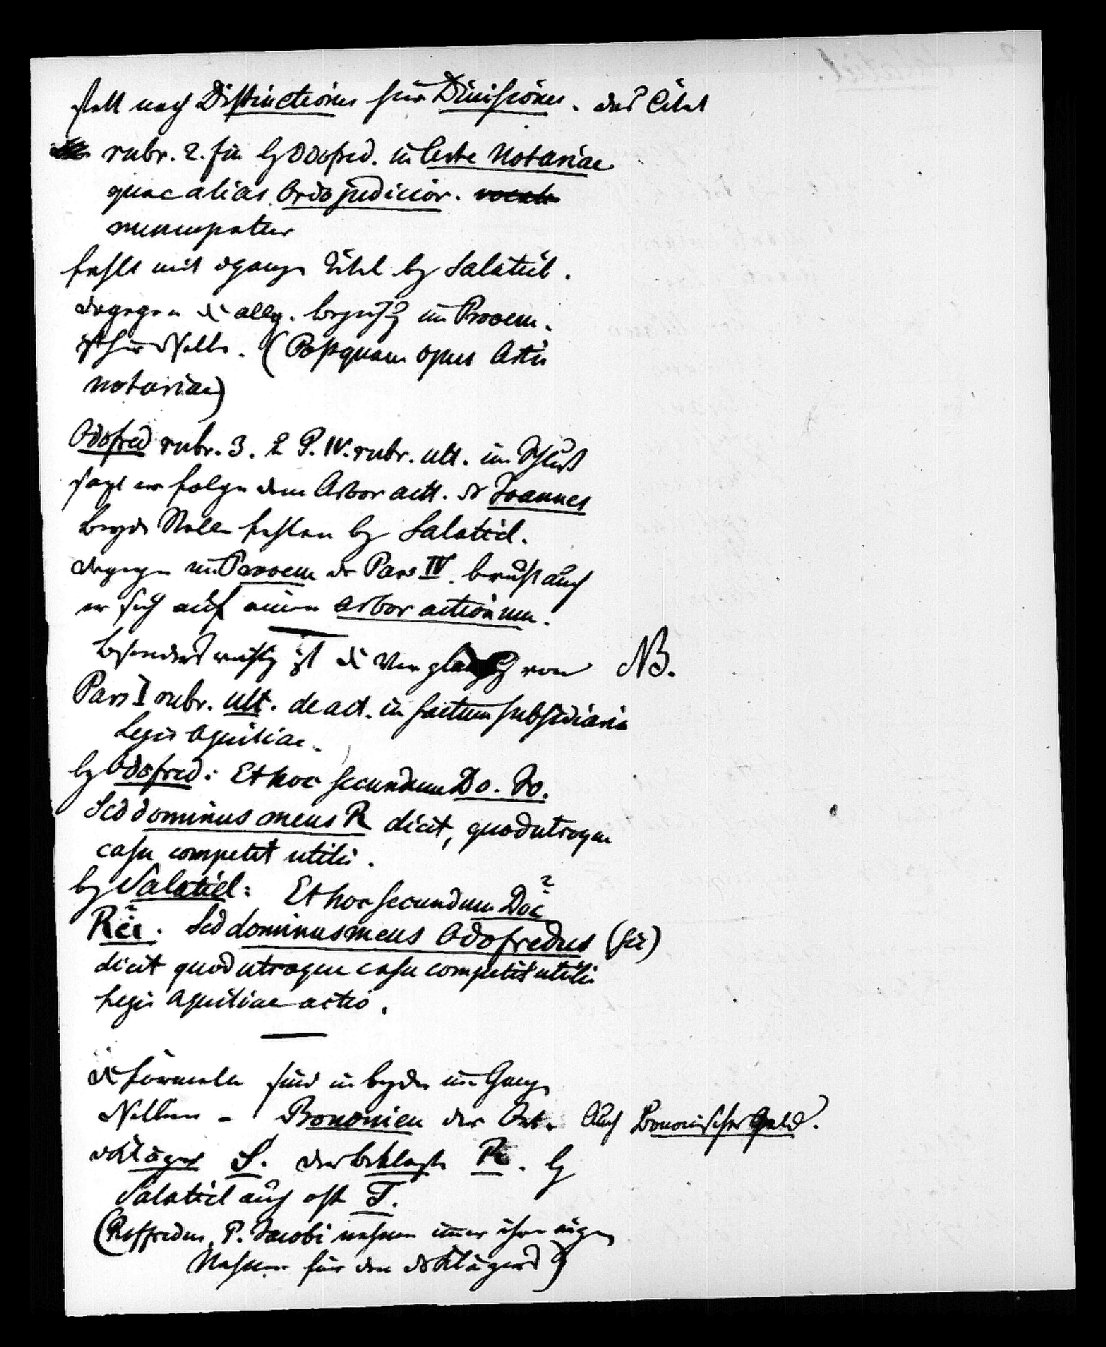 statt nach Distinctiones hier Divisiones. das Citat
rubr. 2. für by Odofred. in Arte Notariae
quae alias Ordo judicior.
nuncupatur
fehlt mit d ganzen Titel by Salatiel.
dagegen d allg. im Prooem.
ist hier dasselbe. (Postquam opus Artis
notariae)
Odofred rubr. 3. & P. IV. rubr. ult. im Schluß
sagt er folge dem Arbor act. des Joannes
Beyde Stellen fehlen by Salatiel.
dagegen im Prooem der Pars IV. beruft auch
er sich auf einen arbor actionum.
Besonders wichtig ist die Vergleichung von NB.
Pars I rubr. ult. de act. in factum subsidiaria
Legis Aquiliae.
by Odofred: Et hoc secundum Do. Jo.
Sed dominus meus R dicit, quod utroque
casu competit utilis.
by Salatiel: Et hoc secundum Doc?
Rei. Sed dominus meus Odofredus (sic)
dicit quod utroque casu competit utilis
Legis Aquiliae actio.
d Formeln sind in beyden im Ganzen
dieselben - Bononien der Ort. Auch Bononischer Geld.
d Kläger S. der beklagte R. by
Salatiel auch oft T.
(Roffredus, P. Jacobi nehmen immer ihren eignen
Nahmen für den des Klägers)